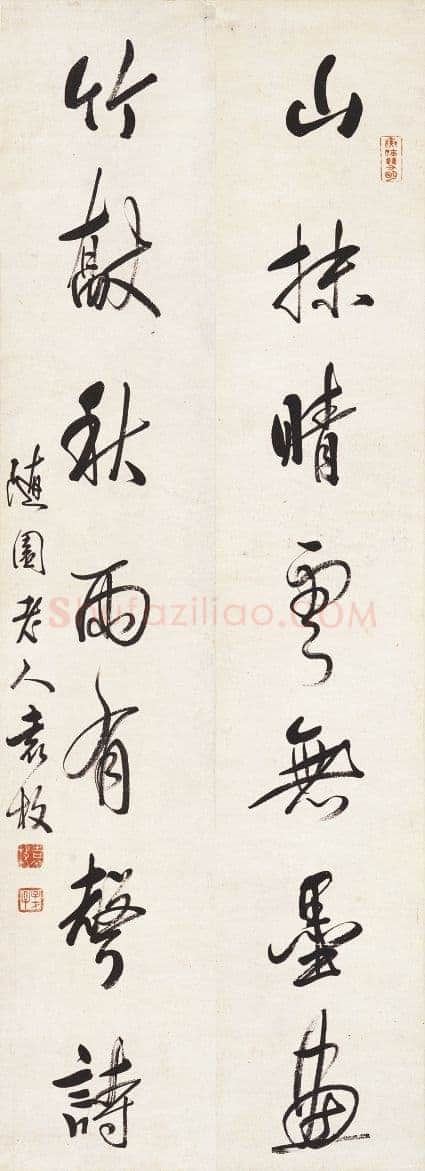 山抹晴雲無墨畫
竹敲秋雨有聲詩
隨園老人袁枚
Shufaziliao.COM